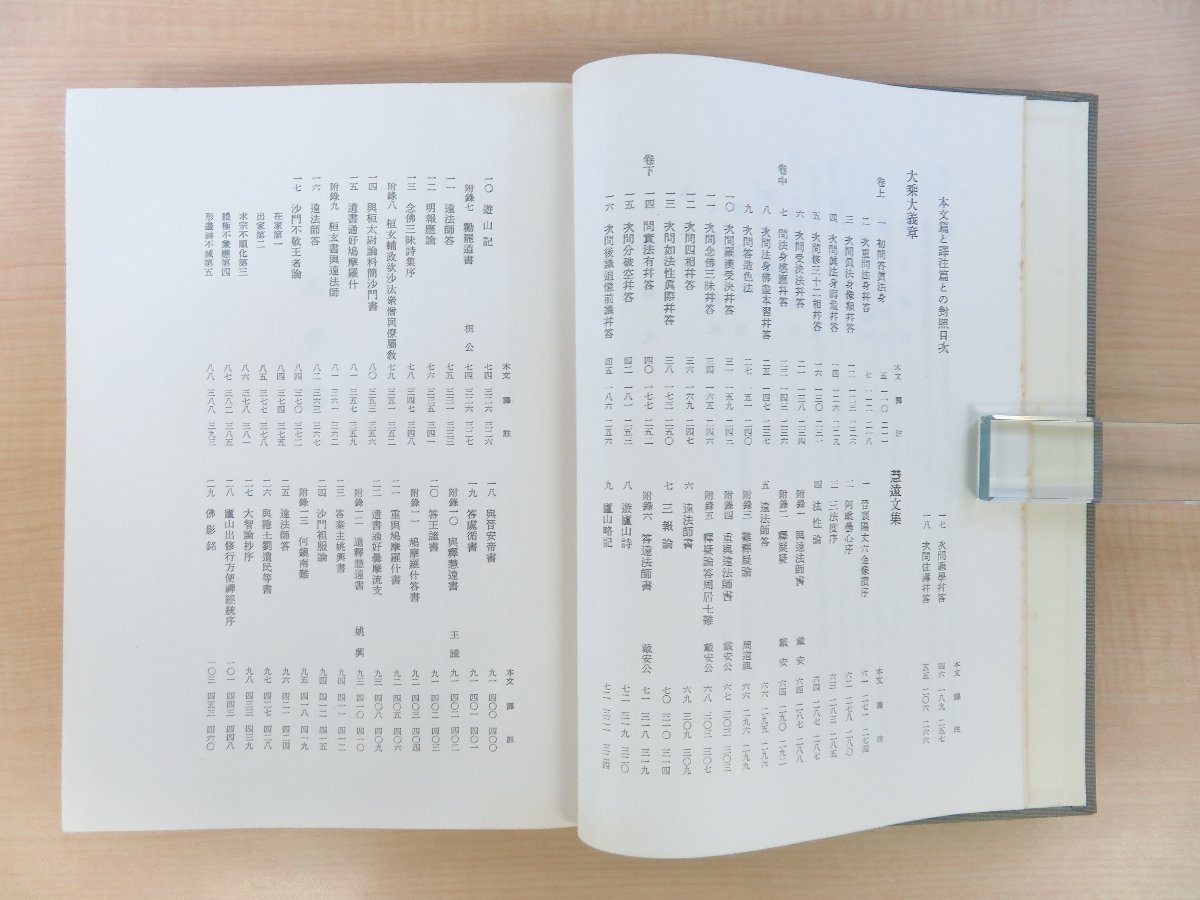 本文篇と譯注篇との對照目次
大乘大義章
本文 譯 註
卷上 一 初問答眞法身 五 一一〇 二一一
二 次重問法身幷答 七 一一二 二一八
三 次問眞法身像類幷答
四 次問眞法身壽量幷答
五 次問修三十二相幷答
六 次問受決法幷答
卷中 七 問法身感應幷答
八 次問法身佛盡本習幷答
九 次問答造色法
一〇 次問羅漢受決幷答
一一 次問念佛三昧幷答
一二 次問四相幷答
一三 次問如法性眞際幷答
卷下 一四 問實法有幷答 四〇 一七七 二五二
一五 次問分破空幷答 四二 一八一 二五二
一六 次問後識追憶前識幷答 四五 一八六 二五六
本文 譯 註
一七 次問遍學幷答 四六 一八九 二五七
一八 次問住壽幷答 五五 二〇六 二六六
慧遠文集
本文 譯 註
一 晉襄陽丈六金像讚序 六一 二七一 二七四
二 阿毗曇心序 六二 二七八 二八〇
三 三法度序 六三 二八三 二八五
四 法性論 六四 二八七 二八七
附錄一 與遠法師書 戴安 六四
附錄二 釋疑疑 戴安 六四 二九〇 二九二
五 遠法師答 六六 二九五 二九六
附錄三 難釋疑論 周道祖 六六 二九六 二九九
附錄四 重與遠法師書 戴安公 六七 三〇三 三〇三
附錄五 釋疑論答周居士難 戴安公 六八 三〇三 三〇七
六 遠法師書 六九 三〇九 三〇九
七 三報論 七〇 三一〇 三一四
附錄六 答遠法師書 戴安公 七一 三一八 三一九
八 遊廬山詩 七二 三一九 三二〇
九 廬山略記 七二 三二一 三二四
本文 譯 註
一〇 遊山記 七四 三二六 三二六
附錄七 勸罷道書 桓公 七四 三二六 三二七
一一 遠法師答 七五 三三一 三三二
一二 明報應論 七六 三三五 三四一
一三 念佛三昧詩集序 七八 三四七 三四八
附錄八 桓玄輔政欲沙汰衆僧與僚屬敎 七九 三五一 三五二
一四 與桓太尉論料簡沙門書 八〇 三五三 三五六
一五 遣書通好鳩摩羅什 八一 三五七 三五九
附錄九 桓玄書與遠法師 八一 三六一 三六二
一六 遠法師答 八二 三六三 三六七
一七 沙門不敬王者論 八四 三七〇 三七二
在家第一 八四 三七四 三七五
出家第二 八五 三七七 三七八
求宗不順化第三 八六 三七八 三八一
體極不兼應第四 八七 三八二 三八五
形盡神不滅第五 八八 三八八 三九三
本文 譯 註
一八 與晉安帝書 九一 四〇〇 四〇〇
一九 答盧循書 九一 四〇一 四〇一
附錄一〇 與釋慧遠書 王謐 九一 四〇二 四〇二
二〇 答王謐書 九一 四〇二 四〇三
附錄一一 鳩摩羅什答書 九二
二一 重與鳩摩羅什書 九二 四〇五 四〇六
二二 遣書通好曇摩流支 九三 四〇八 四〇九
附錄一二 遺釋慧遠書 姚興 九三 四一〇 四一〇
二三 答秦主姚興書 九四 四一一 四一二
二四 沙門袒服論 九四 四一二 四一五
附錄一三 何鎭南難 九五 四一八 四一九
二五 遠法師答 九六 四二一 四二四
二六 與隱士劉遺民等書 九七 四二七 四二八
二七 大智論抄序 九八 四三三 四三九
二八 廬山出修行方便禪經統序 一〇一 四四三 四四八
二九 佛影銘 一〇三 四五三 四六〇